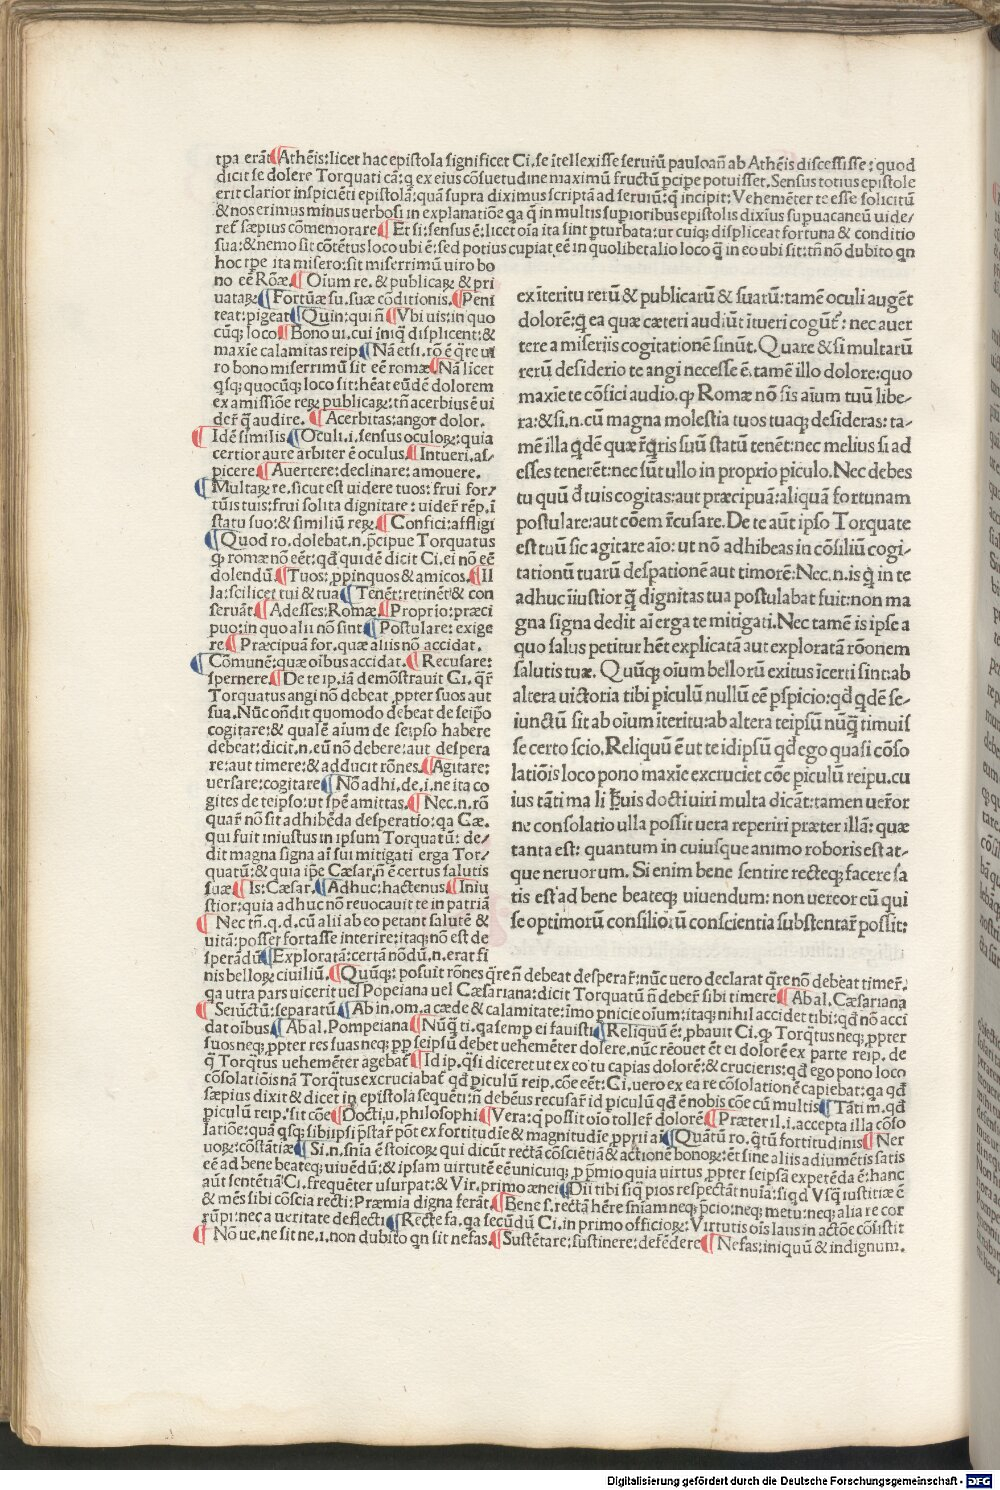 tpa erāt ¶Athēis: licet hac epistola significet Ci. se ītellexisse seruiū pauloan̄ ab Athēis discessisse: quod
dicit se dolere Torquati cā: q̄ ex eius cōsuetudine maximū fructū p̄cipe potuisset. Sensus totius epistole
erit clarior inspiciēti epistolā: quā supra diximus scriptā ad seruiū: q̄ incipit: Vehemēter te esse solicitū
& nos erimus minus uerbosi in explanatiōe qa q̄ in multis supioribus epistolis dixīus supuacaneū uide/
ret̄ sæpius cōmemorare ¶Et si: sensus ē: licet oīa ita sint pturbata: ut cuiq; displiceat fortūa & conditio
sua: & nemo sit cōtētus loco ubi ē: sed potius cupiat eē in quolibet alio loco q̄ in eo ubi sit: tn̄ nō dubito qn
hoc tp̄e ita misero: sit miserrimū uiro bo
no eē Rōæ. ¶Oīum re. & publicaꝝ & pri
uataꝝ: ¶Fortūæ su. suæ cōditionis. ¶Peni
teat: pigeat ¶Quin: qui n̄ ¶Vbi uis: in quo
cūq; loco ¶Bono ui. cui iniq̄ displicent: &
maxīe calamitas reip. ¶Nā etsi. rō ē q̄re ui
ro bono miserrimū sit eē romæ ¶Nā licet
qsq; quocūq; loco sit: hēat eūdē dolorem
ex amissiōe reꝝ publicaꝝ: tn̄ acerbius ē ui
der̄ q̄ audire. ¶Acerbitas: angor dolor.
¶Idē similis ¶Oculi. i. sensus oculoꝝ: quia
certior aure arbiter ē oculus ¶Intueri. as/
picere ¶Auertere: declinare: amouere.
¶Multaꝝ re. sicut est uidere tuos: frui for/
tūis tuis: frui solita dignitate: uider̄ remp. ī
statu suo: & similiū reꝝ ¶Confici: affligi
¶Quod ro. dolebat. n. p̄cipue Torquatus
q̄ romæ nō eēt: qđ quidē dicit Ci. ei nō eē
dolendū ¶Tuos: ppinquos & amicos. ¶Il
la: scilicet tui & tua ¶Tenēt: retinēt & con
seruāt ¶Adesses: Romæ ¶Proprio: præci
puo: in quo alii nō sint ¶Postulare: exige
re ¶Præcipuā for. quæ aliis nō accidat.
¶Cōmunē: quæ oībus accidat. ¶Recusare:
spernere. ¶De te ip. iā demōstrauit Ci. q̄r
Torquatus angi nō debeat ppter suos aut
sua. Nūc oñdit quomodo debeat de seipo
cogitare: & qualē aīum de seipso habere
debeat: dicit. n. eū nō debere: aut despera
re: aut timere: & adducit rōnes. ¶Agitare:
uersare: cogitare ¶Nō adhi. de. i. ne ita co
gites de teipso: ut spē amittas. ¶Nec. n. rō
quar̄ nō sit adhibēda desperatio: qa Cæ.
qui fuit iniustus in ipsum Torquatū: de/
dit magna signa aī sui mitigati erga Tor/
quatū: & quia ipē Cæsar. n̄ ē certus salutis
suæ ¶Is: Cæsar. ¶Adhuc: hactenus ¶Iniu
stior: quia adhuc nō reuocauit te in patriā
¶Nec tn̄. q. d. cū alii ab eo petant salutē &
uitā: posset fortasse interire: itaq; nō est de
sperādū ¶Exploratā: certā nōdū. n. erat fi
nis belloꝝ ciuiliū. ¶Quūq;: posuit rōnes q̄re n̄ debeat desperar̄: nūc uero declarat q̄re nō debeat timer̄.
qa utra pars uicerit uel Popeiana uel Cæsariana: dicit Torquatū n̄ deber̄ sibi timere ¶Ab al. Cæsariana
¶Seiūctū: separatū ¶Ab in. om. a cæde & calamitate: īmo pnicie oīum: itaq; nihil accidet tibi: qđ nō acci
dat oībus ¶Ab al. Pompeiana ¶Nūq̄ ti. qa semp ei fauisti ¶Reliquū ē: pbauit Ci. q̄ Torq̄tus neq; ppter
suos neq; ppter res suas neq; pp seipsū debet uehemēter dolere. nūc rēouet ēt ei dolorē ex parte reip. de
q̄ Torq̄tus uehemēter agebat̄ ¶Id ip. q̄si diceret ut ex eo tu capias dolorē: & crucieris: qđ ego pono loco
cōsolatiōis nā Torq̄tus excruciabat̄ qđ piculū reip. cōe eēt: Ci. uero ex ea re cōsolationē capiebat: qa qđ
sæpius dixit & dicet in epistola sequēti: n̄ debeus recusar̄ id piculū qđ ē nobis cōe cū multis ¶Tāti m. qđ
piculū reip. sit cōe ¶Docti, u. philosophi ¶Vera: q̄ possit oīo toller̄ dolorē ¶Præter il. i. accepta illa cōso
latiōe: quā qsq; sibiipsi p̄star̄ pōt ex fortitudīe & magnitudīe pprii aī ¶Quātū ro. q̄tū fortitudinis ¶Ner
uoꝝ: cōstātiæ ¶Si. n. sn̄ia ē stoicoꝝ qui dicūt rectā cōsciētiā & actionē bonoꝝ: ēt sine aliis adiumētis satis
eē ad bene beateq; uiuēdū: & ipsam uirtutē eē unicuiq; p pmio quia uirtus ppter seipsā expetēda ē: hanc
aūt sentētiā Ci. frequēter usurpat: & Vir. primo ænei ¶Dii tibi siq̄ pios respectāt nuīa: siqd Vsq̄ iustitiæ ē
& mēs sibi cōscia recti: Præmia digna ferāt. ¶Bene s. rectā hēre sn̄iam neq; pcio: neq; metu: neq; alia re cor
rūpi: nec a ueritate deflecti ¶Recte fa. qa secūdū Ci. in primo officioꝝ: Virtutis oīs laus in actōe cōsistit
¶Nō ue. ne sit ne. i. non dubito qn sit nefas. ¶Sustētare: sustinere: defēdere ¶Nefas: iniquū & indignum.
ex īteritu rerū & publicarū & suarū: tamē oculi augēt
dolorē: q̄ ea quæ cæteri audiūt ītueri cogūt̄: nec auer
tere a miseriis cogitationē sinūt. Quare & si multarū
rerū desiderio te angi necesse ē. tamē illo dolore: quo
maxīe te cōfici audio. q̄ Romæ nō sis aīum tuū libe/
ra: & si. n. cū magna molestia tuos tuaq; desideras: ta-
mē illa qdē quæ rq̄ris suū statū tenēt: nec melius si ad
esses tenerēt: nec sūt ullo in proprio piculo. Nec debes
tu quū đ tuis cogitas: aut præcipuā: aliquā fortunam
postulare: aut cōem rcusare. De te aūt ipso Torquate
est tuū sic agitare aīo: ut nō adhibeas in cōsiliū cogi-
tationū tuarū despationē aut timorē: Nec. n. is q̄ in te
adhuc īiustior q̄ dignitas tua postulabat fuit: non ma
gna signa dedit aī erga te mitigati. Nec tamē is ipse a
quo salus petitur hēt explicatā aut exploratā rōonem
salutis tuæ. Quūq; oīum bellorū exitus īcerti sint: ab
altera uictoria tibi piculū nullū eē pspicio: qđ qdē se-
iunctū sit ab oīum īteritu: ab altera teipsū nūq̄ timuis
se certo scio. Reliquū ē ut te idipsū qđ ego quasi cōso
latiōis loco pono maxīe excruciet cōe piculū reipu. cu
ius tāti ma li quis docti uiri multa dicāt: tamen uer̄or
ne consolatio ulla possit uera reperiri præter illā: quæ
tanta est: quantum in cuiusque animo roboris est at-
que neruorum. Si enim bene sentire recteq; facere sa
tis est ad bene beateq; uiuendum: non uereor eū qui
se optimorū consiliorū conscientia substentar̄ possit:
Digitalisierung gefördert durch die Deutsche Forschungsgemeinschaft - DFG